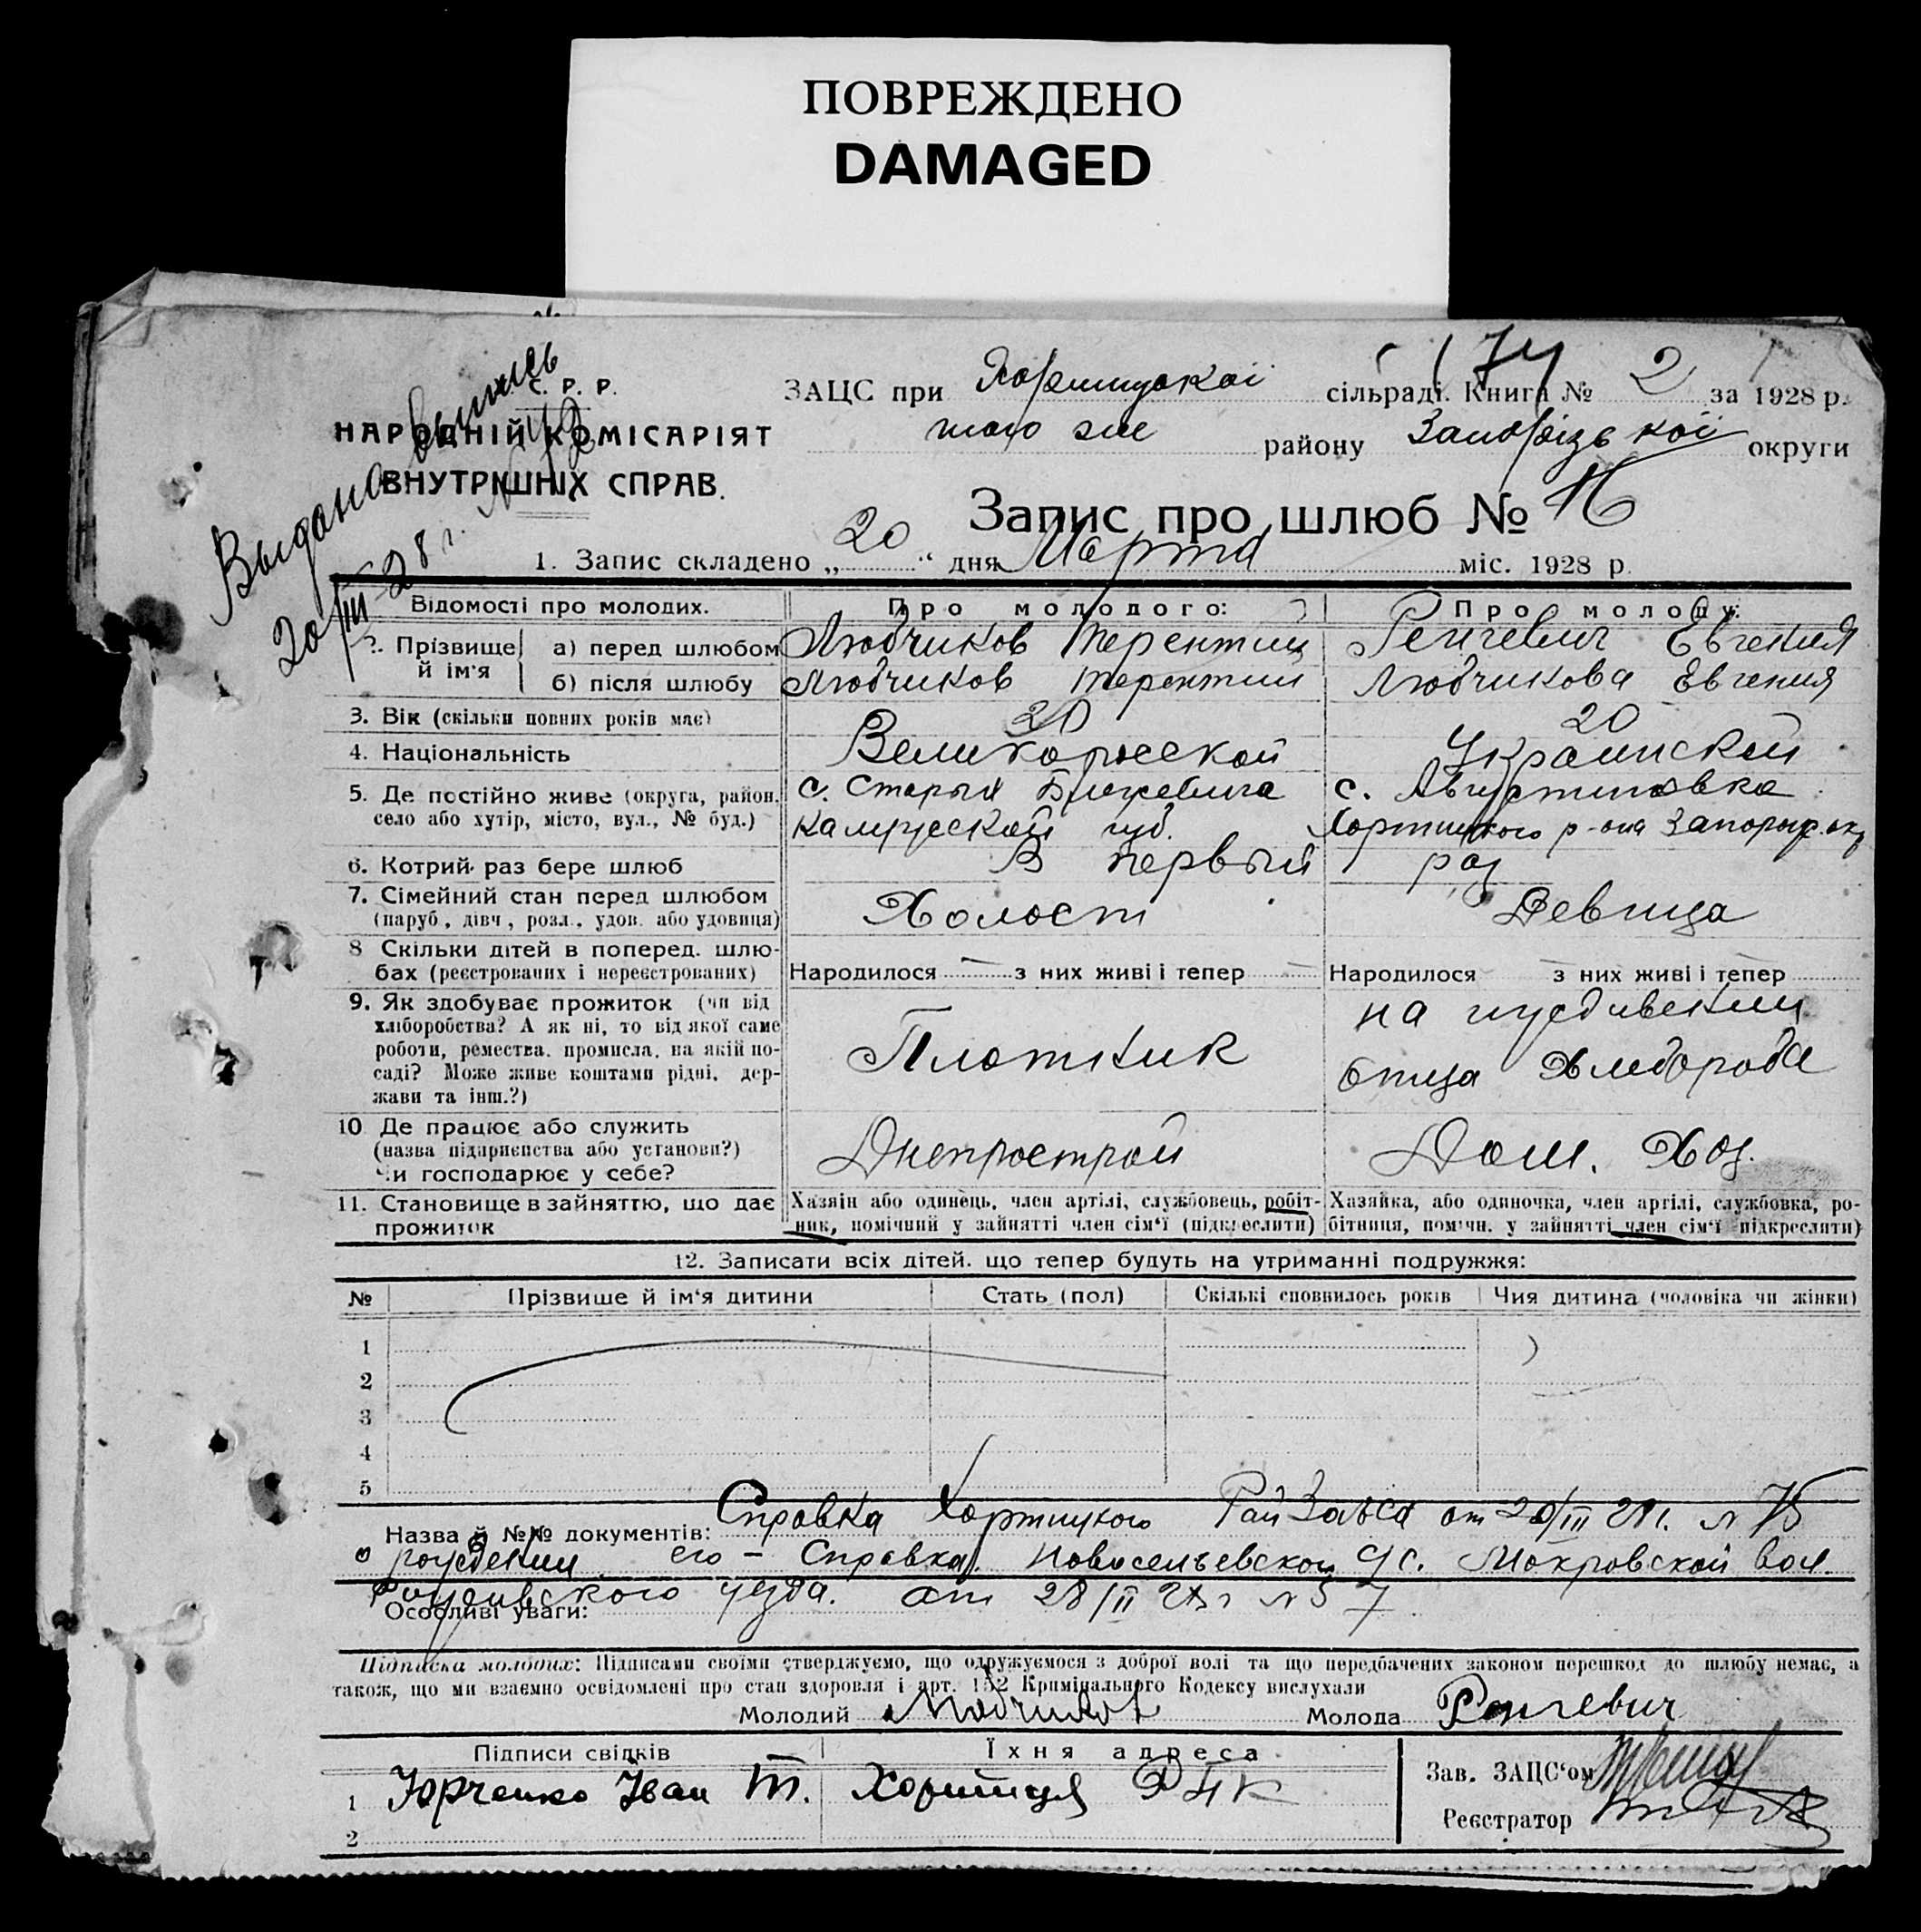 ПОВРЕЖДЕНО
DAMAGED
174
С. Р. Р.
НАРОДНІЙ КОМІСАРІЯТ
ВНУТРІШНІХ СПРАВ.
Выдана выпись
20/III-28 г. №
ЗАЦС при Хортицкої сільраді. Книга № 2 за 1928 р.
того же району Запорізької округи
Запис про шлюб № 16
1. Запис складено „ 20 “ дня Марта міс. 1928 р.
Відомості про молодих. Про молодого: Про молоду:
2. Прізвище й ім‘я а) перед шлюбом Любчиков Терентий Евгения
б) після шлюбу Любчиков Терентий Любчикова Евгения
3. Вік (скільки повних років має) 20 20
4. Національність Великорусской Украинской
5. Де постійно живе (округа, район, с. Старый с. Августиновка
село або хутір, місто, вул., № буд.) губ. Хортицкого р-она Запорож. окр
6. Котрий раз бере шлюб В первый раз
7. Сімейний стан перед шлюбом Холост Девица
(паруб., дівч., розл., удов. або удовиця)
8 Скільки дітей в поперед. шлю-
бах (реєстрованих і нереєстрованих) Народилося — з них живі і тепер — Народилося з них живі і тепер
9. Як здобуває прожиток (чи від на иждивении
хліборобства? А як ні, то від якої саме
роботи, ремества, промисла, на якій по- Плотник
саді? Може живе коштами рідні, дер- отца Хлебороба
жави та інш.?)
10 Де працює або служить Днепрострой Дом. Хоз.
(назва підприємства або установи?)
Чи господарює у себе?
11. Становище в зайняттю, що дає Хазяїн або одинець, член артілі, службовець, робіт- Хазяйка, або одиночка, член артілі, службовка, ро-
прожиток ник, помічний у зайнятті член сім‘ї (підкреслити) бітниця, помічн. у зайнятті член сім‘ї підкреслити)
12. Записати всіх дітей, що тепер будуть на утриманні подружжя:
№ Прізвише й ім‘я дитини Стать (пол) Скількі сповнилось років Чия дитина (чоловіка чи жінки)
1
2
3
4
5
Назва й №№ документів: Справка Хортицкого РайЗагса от 20/III 28г. № 75
о рождении его - Справка с/с. Мокровской вол.
уезда. от 28/II 28г № 57
Особливі уваги:
Підписка молодих: Підписами своїми стверджуємо, що одружуємося з доброї волі та що передбачених законом перешкод до шлюбу немає, а
також, що ми взаємно освідомлені про стан здоровля і арт. 152 Кримінального Кодексу вислухали
Молодий Любчиков Молода
Підписи свідків Їхня адреса
1 Юрченко Іван Т. Хортиця РПК
2
Зав. ЗАЦС‘ом
Реєстратор